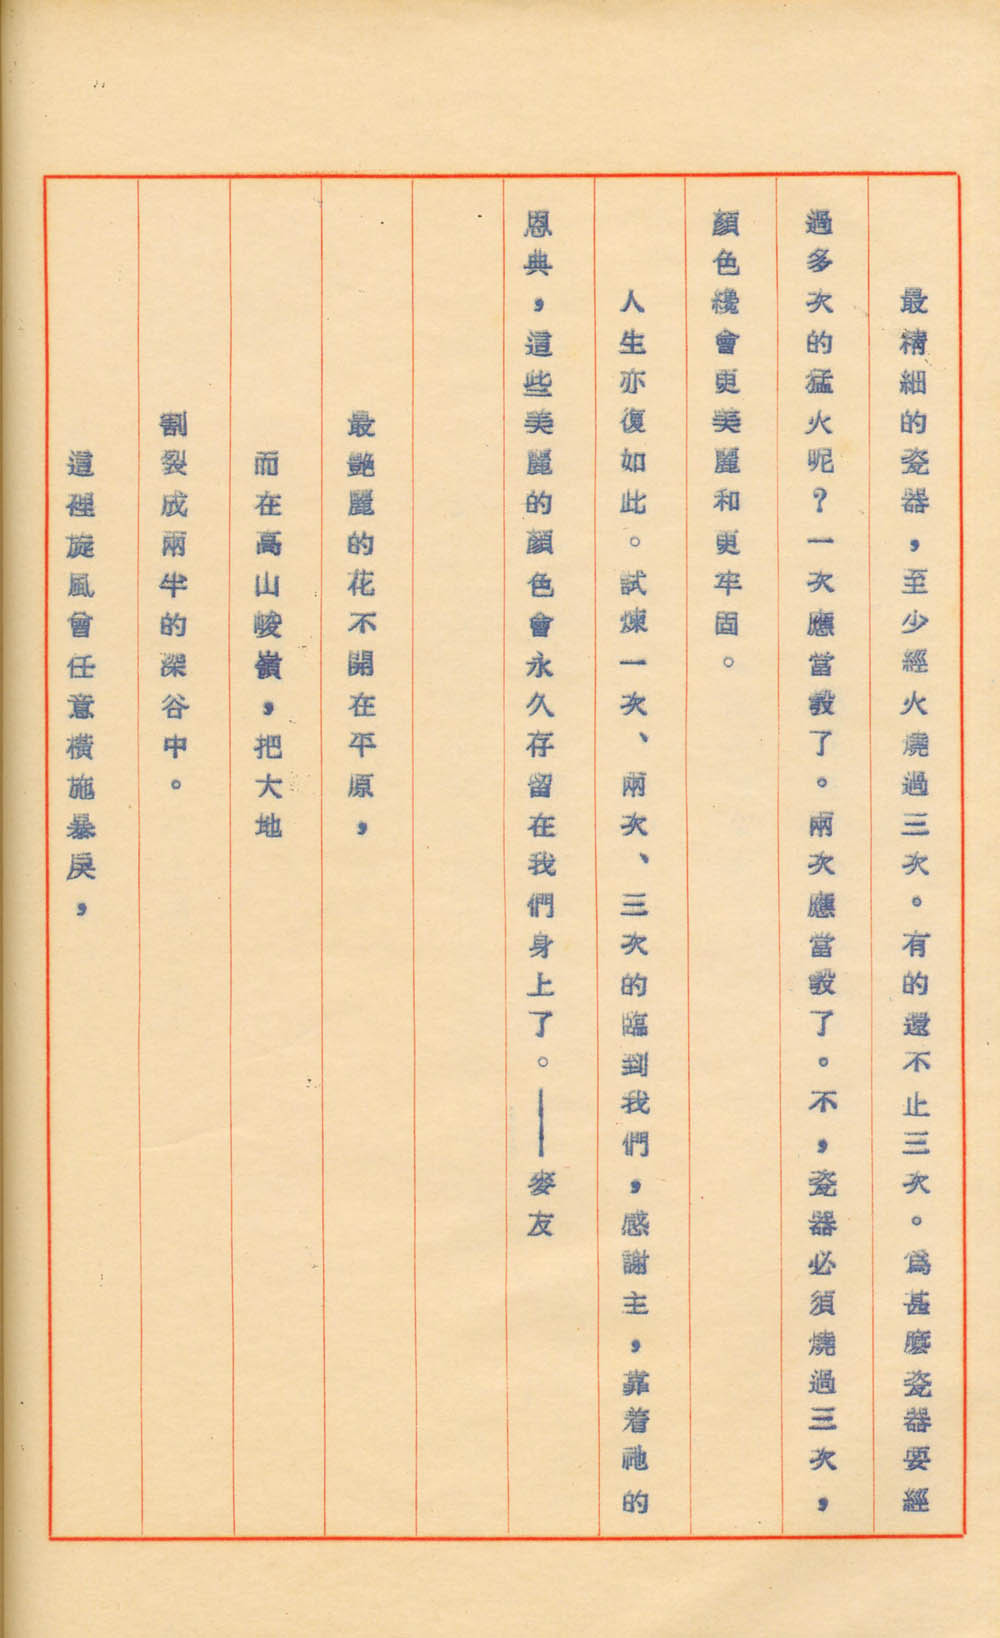 最精細的瓷器，至少經火燒過三次。有的還不止三次。爲甚麽瓷器要經
過多次的猛火呢？一次應當彀了。兩次應當彀了。不，瓷器必須燒過三次，
顏色纔會更美麗和更牢固。
人生亦復如此。試煉一次、兩次、三次的臨到我們，感謝主，靠着祂的
恩典，這些美麗的顏色會永久存留在我們身上了。——麥友
最艷麗的花不開在平原，
而在高山峻嶺，把大地
割裂成兩半的深谷中。
這裡旋風曾任意橫施暴戾，